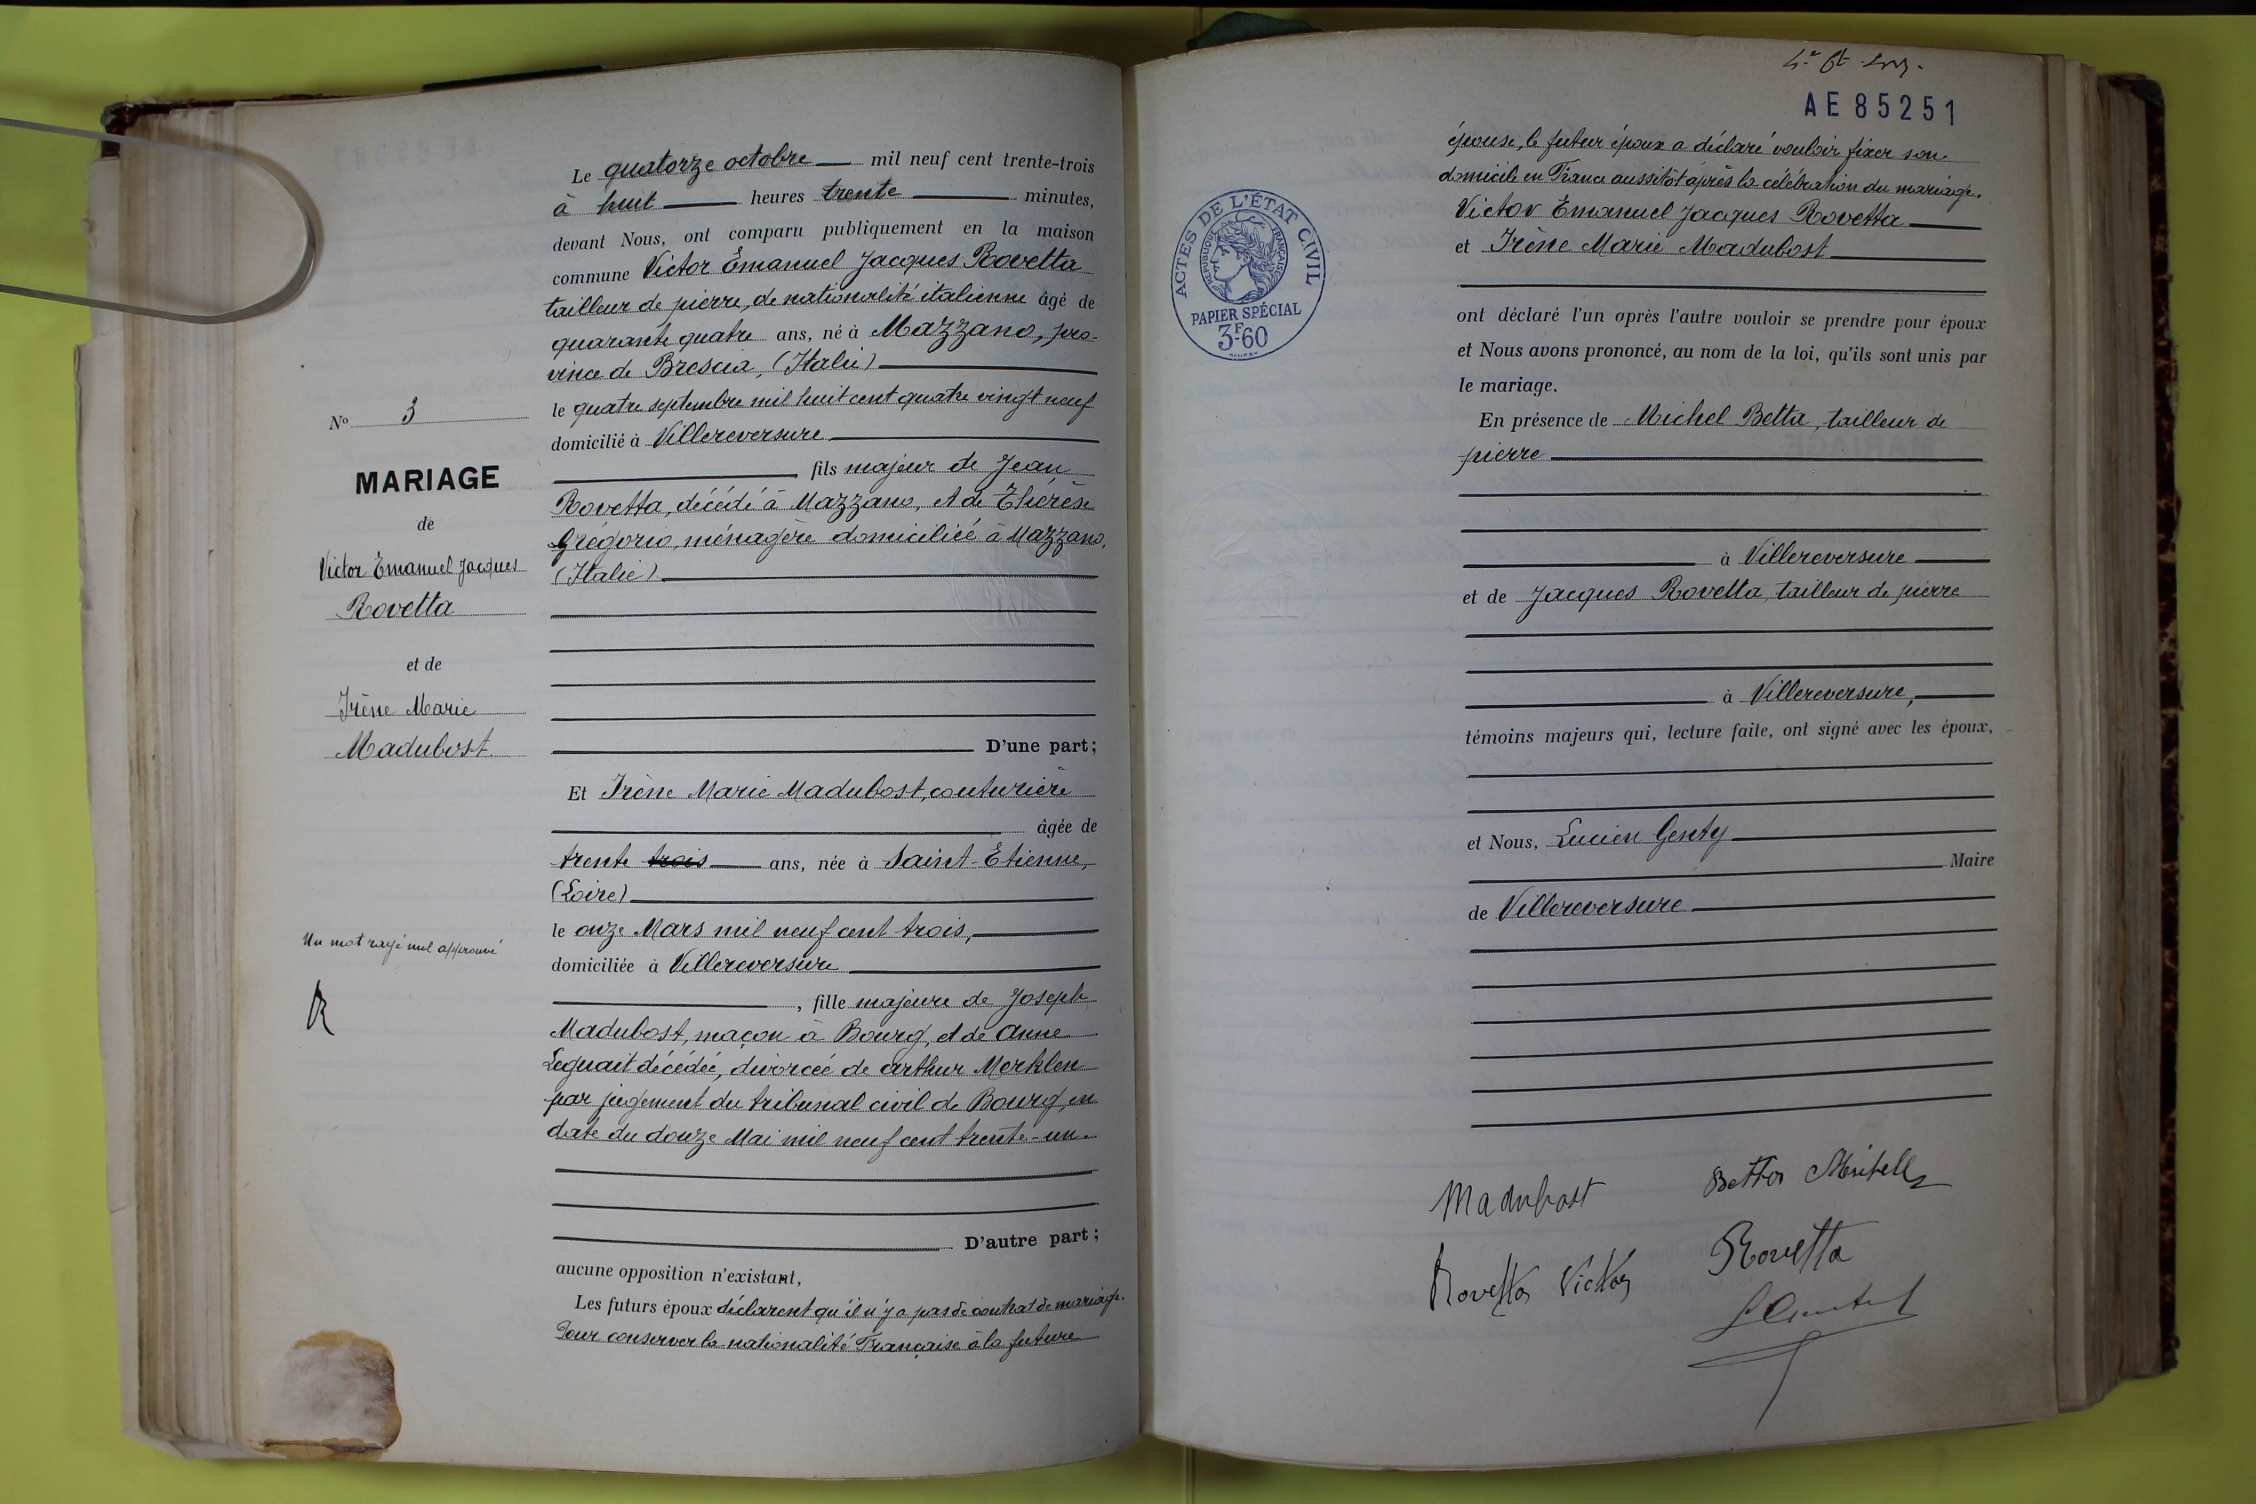 Le quatorze octobre mil neuf cent trente-trois
à huit heures trente minutes,
devant Nous, ont comparu publiquement en la maison
commune Victor Emanuel Jacques Rovetta
tailleur de pierre, de nationalité italienne âgé de
quarante quatre ans, né à Mazzano, pro-
vince de Brescia, (Italie)
le quatre septembre mil huit cent quatre vingt neuf
domicilié à Villereversure
fils majeur de Jean
Rovetta, décédé à Mazzano, et de Thérèse
Grégorio, ménagère domiciliée à Mazzano,
(Italie)
D'une part;
Et Irène Marie Madubost, couturière
âgée de
trente trois ans, née à Saint-Étienne,
(Loire)
le onze Mars mil neuf cent trois,
domiciliée à Villereversure
, fille majeure de Joseph
Madubost, maçon à Bourg, et de Anne
Lequait décédée, divorcée de Arthur Merklen
par jugement du tribunal civil de Bourg, en
date du douze Mai mil neuf cent trente-un.
D'autre part;
aucune opposition n'existant,
Les futurs époux déclarent qu'il n'y a pas de contrat de mariage.
Pour conserver la nationalité Française à la future
No 3
MARIAGE
de
Victor Emanuel Jacques
Rovetta
et de
Irène Marie
Madubost.
Un mot rayé nul approuvé
R
AE85251
épouse, le futur époux a déclaré vouloir fixer son
domicile en France aussitôt après la célébration du mariage.
Victor Emanuel Jacques Rovetta
et Irène Marie Madubost
ont déclaré l'un après l'autre vouloir se prendre pour époux
et Nous avons prononcé, au nom de la loi, qu'ils sont unis par
le mariage.
En présence de Michel Betta, tailleur de
pierre
à Villereversure
et de Jacques Rovetta, tailleur de pierre
à Villereversure,
témoins majeurs qui, lecture faite, ont signé avec les époux,
et Nous, Lucien Genty
Maire
de Villereversure
ACTES DE L'ÉTAT CIVIL
RÉPUBLIQUE FRANÇAISE
PAPIER SPÉCIAL
3F-60
Madubost
Betta
Rovetta Victor
Rovetta